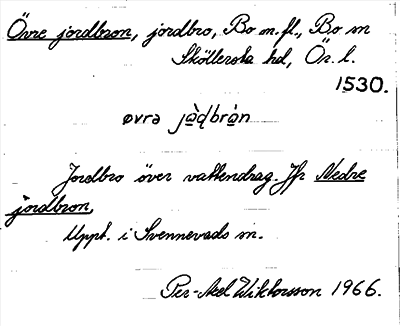 Övre jordbron, jordbro, Bo m.fl., Bo sn
Sköllersta hd, Ör. l.
1530.
øvrə jɑ̀ḍbrȧn
Jordbro över vattendrag. Jfr Nedre
jordbron.
Uppt. i Svennevads sn.
Per-Axel Wiktorsson 1966.